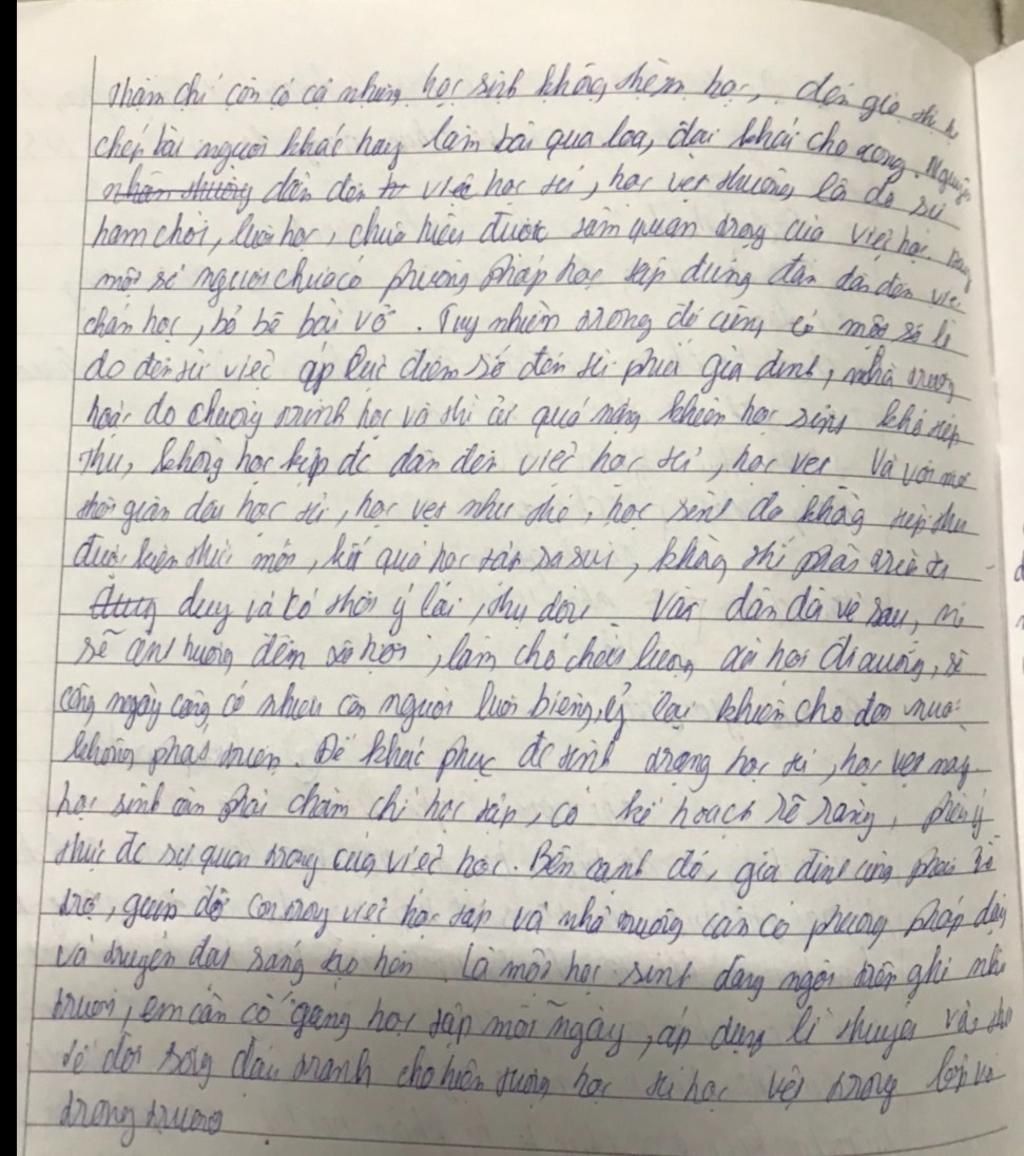 thậm chí còn có cả những học sinh không thèm học, đến giờ thì
chép bài người khác hay làm bài qua loa, đại khái cho xong. Nguyên
nhân thường dẫn đến việc học tủ, học vẹt thường là do sự
ham chơi, lười học, chưa hiểu được tầm quan trọng của việc học.
một số người chưa có phương pháp học tập đúng đắn dẫn đến việc
chán học, bỏ bê bài vở. Tuy nhiên trong đó cũng có một số lí
do đến từ việc áp lực điểm số đến từ phía gia đình, nhà trường
hoặc do chương trình học và thi cử quá nặng khiến học sinh khó tiếp
thu, không học kịp dc dẫn đến việc học tủ, học vẹt. Và với một
thời gian dài học tủ, học vẹt như thế, học sinh đó không tiếp thu
được kiến thức mới, kết quả học tập sa sút, không thể phát triển tư
duy và có thói ỷ lại, thụ động. Vấn dần dà về sau, nó
sẽ ảnh hưởng đến xã hội, làm cho chất lượng xã hội đi xuống, sẽ
càng ngày càng có nhiều con người lười biếng, ỷ lại khiến cho đất nước
không phát triển. Để khắc phục dc tình trạng học tủ, học vẹt này
học sinh cần phải chăm chỉ học tập, có kế hoạch rõ ràng, phải ý
thức dc sự quan trọng của việc học. Bên cạnh đó, gia đình cũng phải hỗ
trợ, giúp đỡ con trong việc học tập và nhà trường cần có phương pháp dạy
và truyền đạt sáng tạo hơn. Là một học sinh đang ngồi trên ghế nhà
trường, em cần cố gắng học tập mỗi ngày, áp dụng lí thuyết vào thực
tế đời sống đấu tranh cho hiện tượng học tủ học vẹt trong lớp và
trong trường